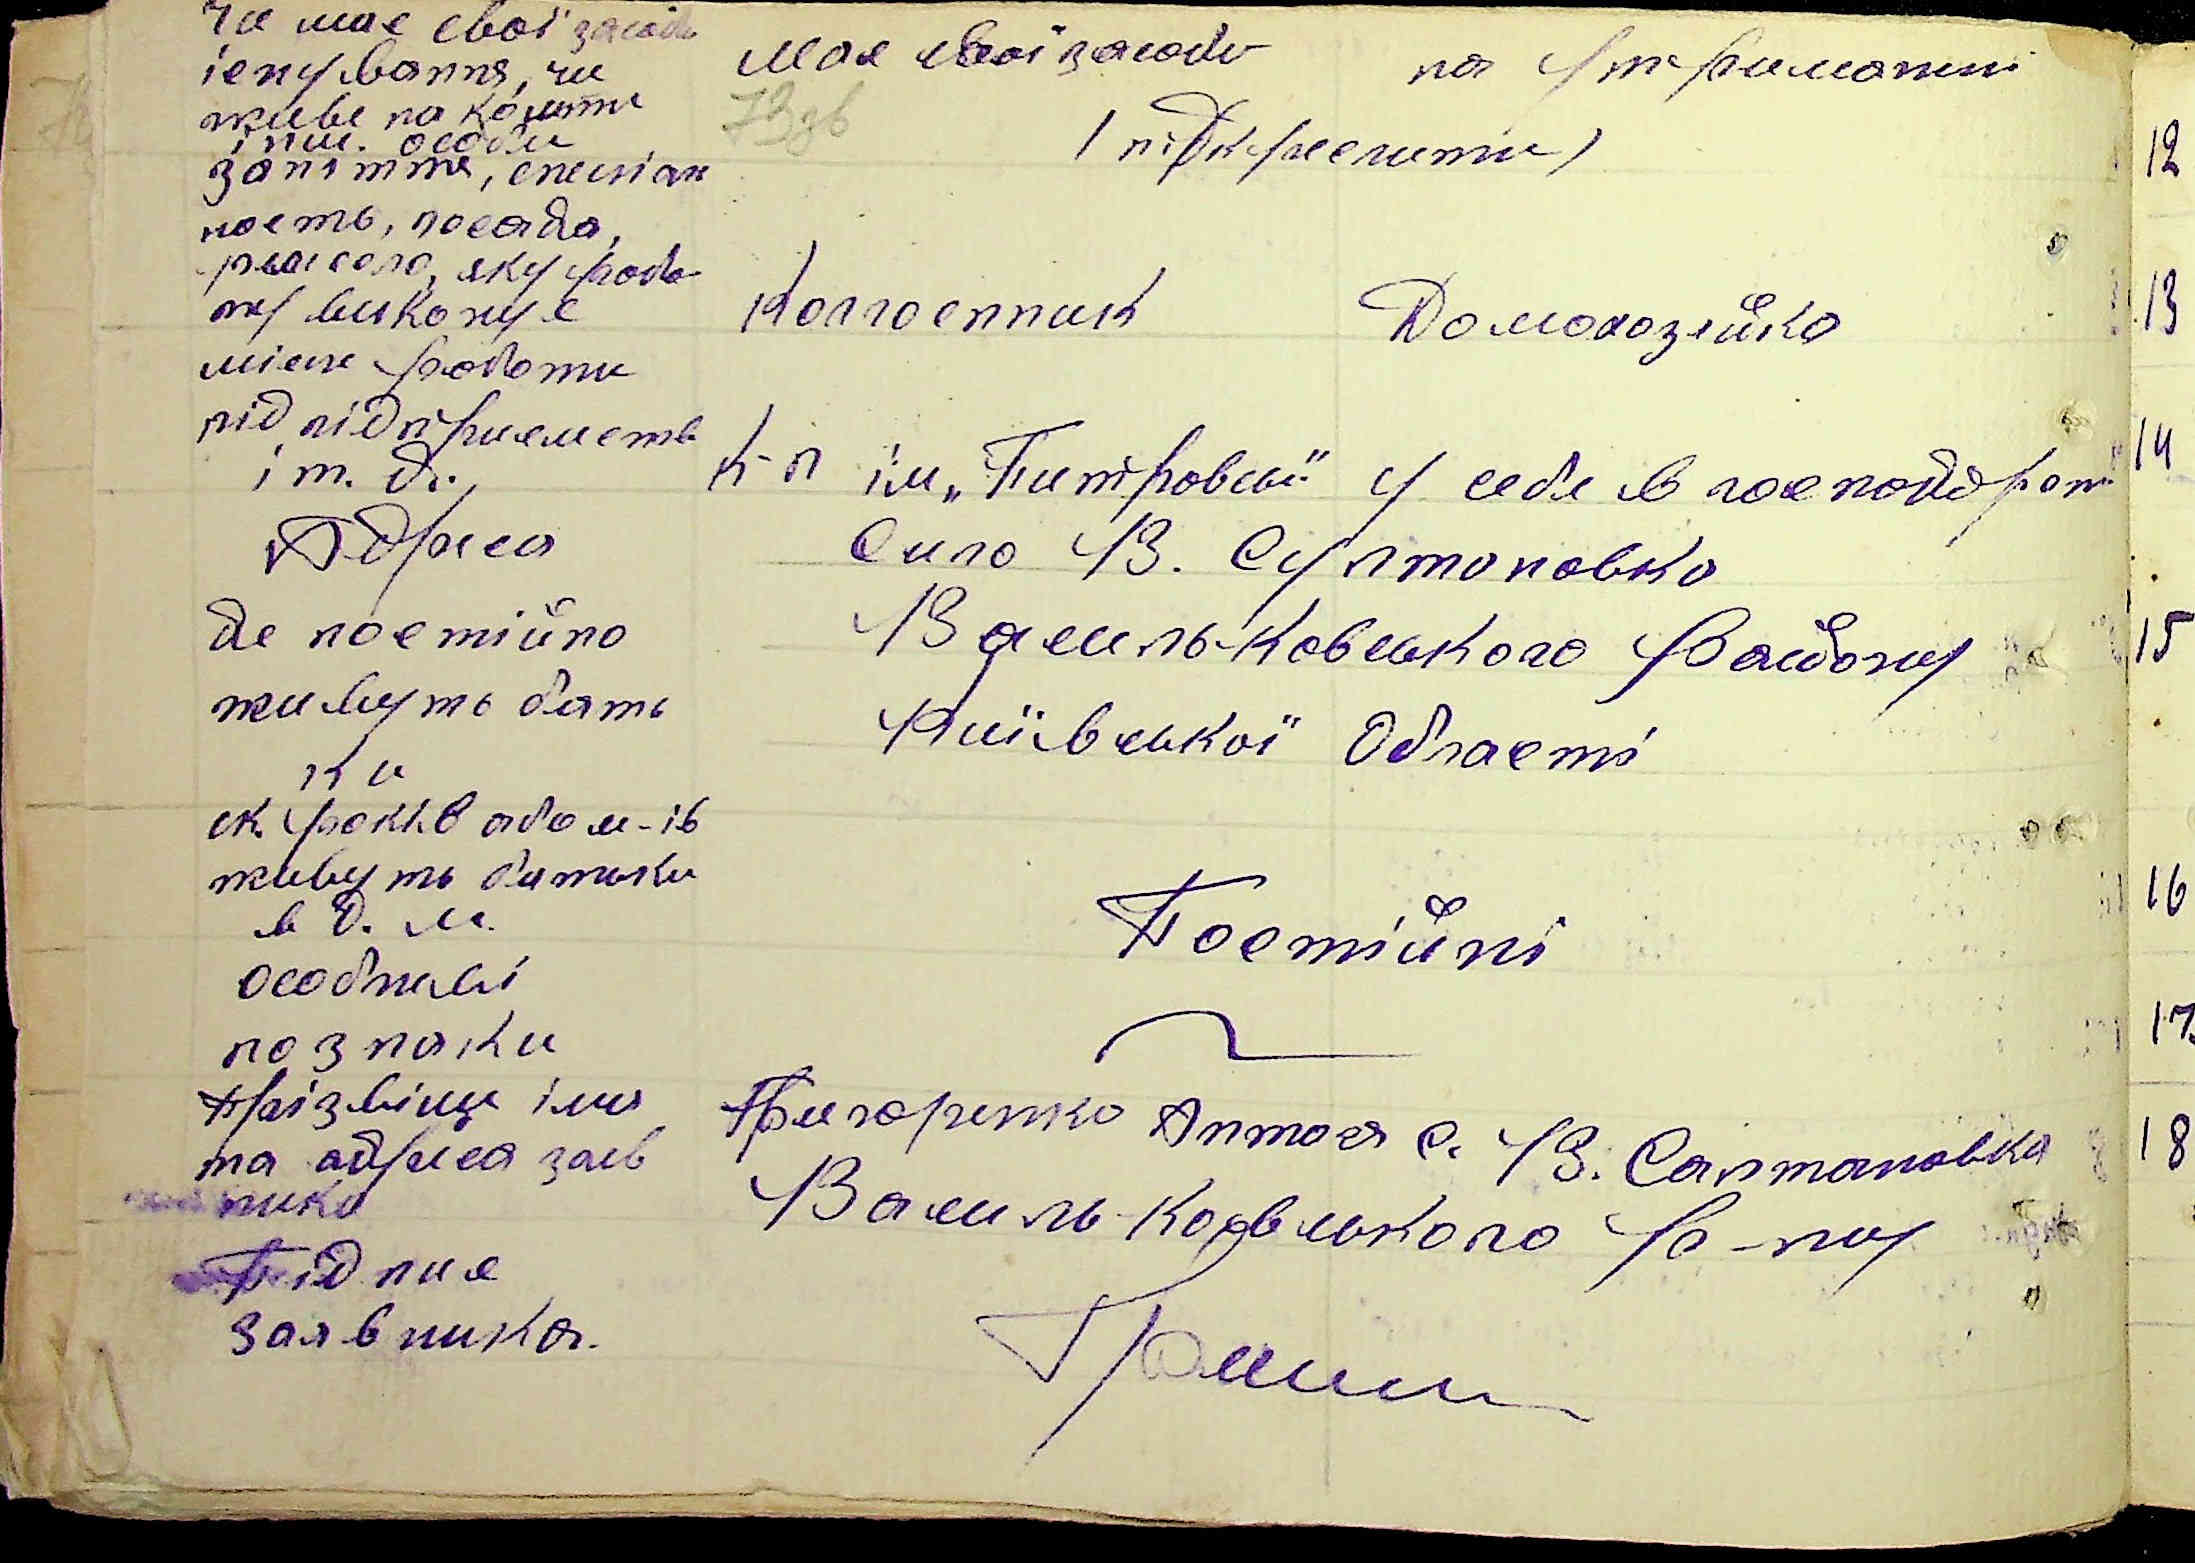 Чи має свої засоби
існування, чи
живе на кошти
інш. особи
має свої засоби на утриманні
73зв
(підкреслити)
заняття, спеціаль
ность, посада,
ремесло, яку робо
ту виконує
Колгоспник Домохозяйка
місце роботи
підпідприємств
і т. д.
к-п ім „Питровськ" у себе в господдрят
Адреса
Сило В. Султоновка
де постійно
живуть бать
ки
Васильковського Району
Київської Області
ск. років або м-ів
живуть батьки
в д. м.
Постійні
особливі
познаки
Прізвіще імя
та адреса заяв
ника
Григоренко Антося с. В. Салтановка
Васильковського р-ну
Підпис
заявника.
12
13
14
15
16
17
18